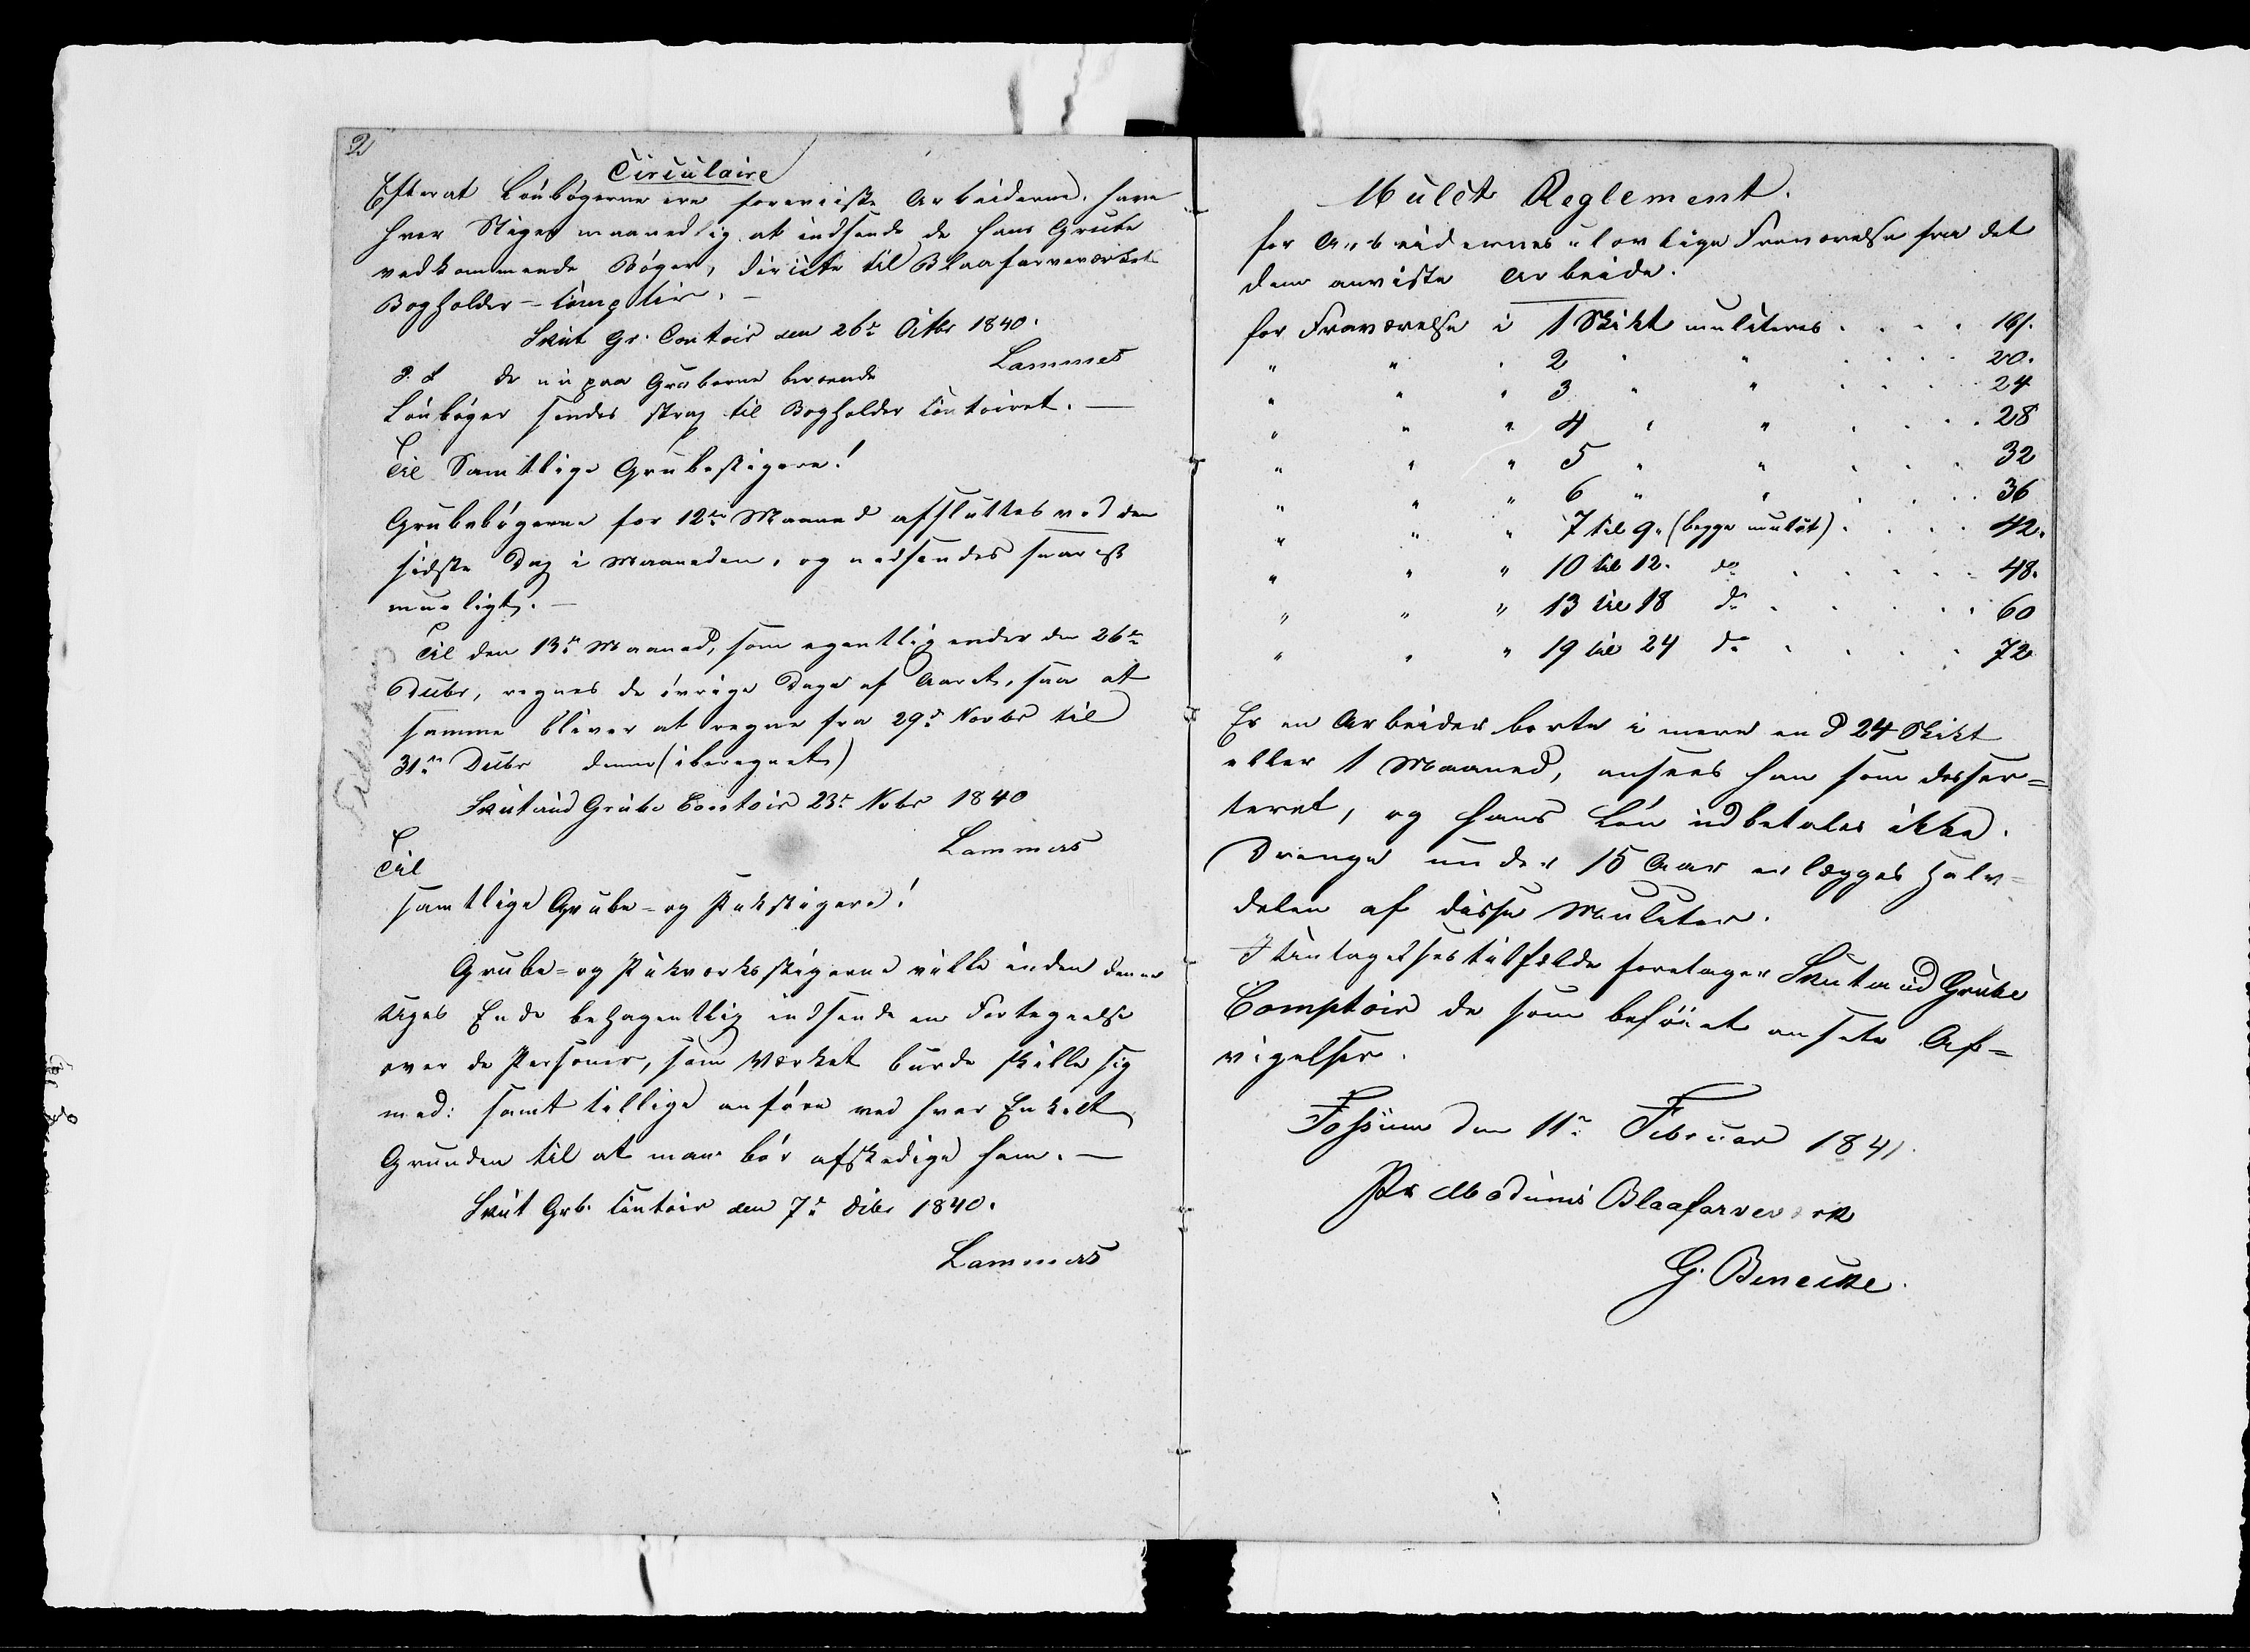 2
Circulaire
Efterat Lönbögerne ere foreviiste Arbeiderne, have
hver Stiger maanedlig at indsende de hans Grube
vedkommende Böger, directe til Blaafarveværkets
Bogholder-Comptoir. —
Skut Gr. Contoir den 26de Octbr 1840.
Lammers
P. S. de nu paa Gruberne beroende
Lönböger sendes strax til Bogholder Contoiret. —
Til Samtlige Grubestigere!
Grubebögerne for 12te Maaned afsluttes ved den
sidste Dag i Maaneden, og nedsendes snarest
mueligt. —
Til den 13de Maaned, som egentlig ender den 26de
Decbr, regnes de övrige Dage af Aaret, saa at
samme bliver at regne fra 29de Novbr til
31te Decbr denne (iberegnet)
Skuterud Grube Contoir 23de Nvbr 1840
Lammers
Til
samtlige Grube- og Pukstigere!
Grube- og Pukværksstigerne ville inden denne
Uges Ende behagentlig indsende en Fortegnelse
over de Personer, som Værket burde skille sig
med: samt tillige anföre ved hver Enkelt
Grunden til at man bör afskedige ham. —
Skut Grb. Contoir den 7de Decbr 1840.
Lammers
Mulct Reglement.
for Arbeidernes ulovlige Fraværelse fra det
dem anviste Arbeide.
for Fraværelse i 1 Skikt mulcteres . . . . 16 s.
" " " 2 " " . . . . 20.
" " " 3 " " . . . . 24
" " " 4 " " . . . . 28
" " " 5 " " . . . 32
" " " 6 " " . . . . 36
" " " 7 til 9. (begge inclus) . . . . 42.
" " " 10 til 12. do . . . . . 48.
" " " 13 til 18 do . . . . . 60
" " " 19 til 24 do . . . . 72
Er en Arbeider borte i mere end 24 Skikt
eller 1 Maaned, ansees han som deser-
teret, og hans Lön udbetales ikke.
Drenge under 15 Aar erlægges Halv-
delen af disse Mulcter.
I Undtagelsestilfælde foretager Skuterud Grube
Comptoir de som beföiet ansete Af-
vigelser.
Fossum den 11te Februar 1841.
Pr Modums Blaafarveværk
G. Benecke.